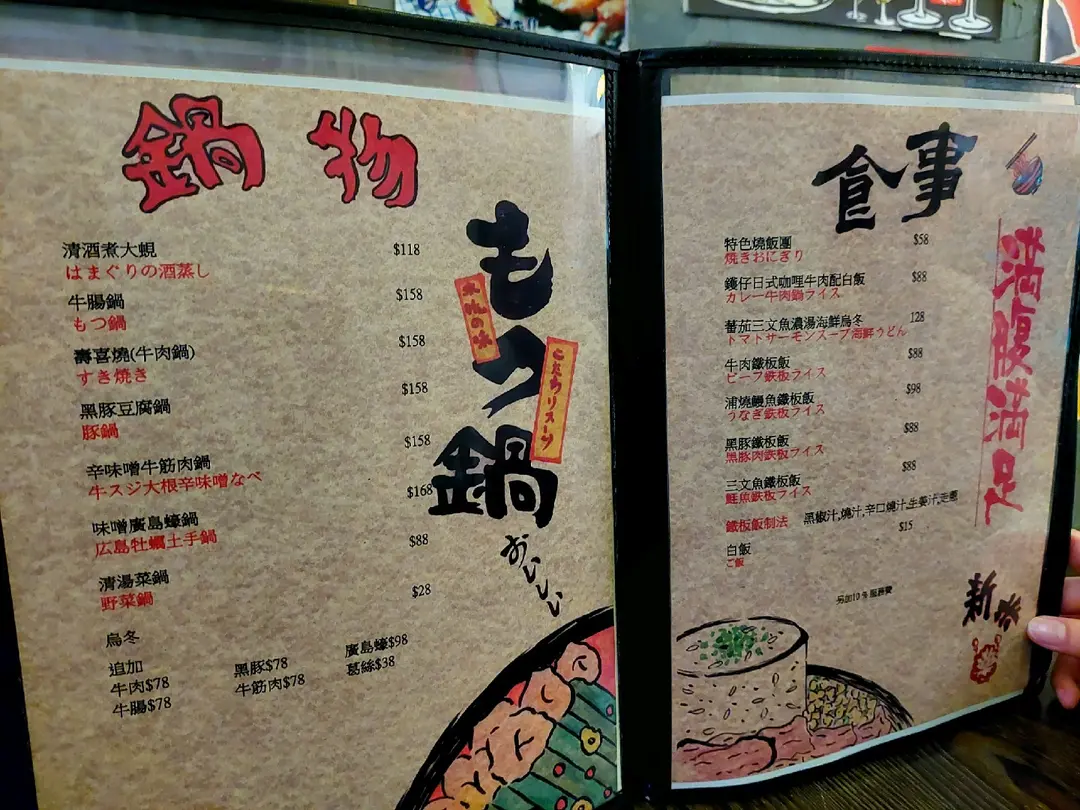 鍋物
清酒煮大蜆 $118
はまぐりの酒蒸し
牛腸鍋 $158
もつ鍋
壽喜燒(牛肉鍋) $158
すき焼き
黑豚豆腐鍋 $158
豚鍋
辛味噌牛筋肉鍋 $158
牛スジ大根辛味噌なべ
味噌廣島蠔鍋 $168
広島牡蠣土手鍋
清湯菜鍋 $88
野菜鍋
烏冬 $28
追加
牛肉$78
牛腸$78
黑豚$78
牛筋肉$78
廣島蠔$98
葛絲$38
もつ鍋
の味
こだわりスープ
おいしい
食事
特色燒飯團 $58
焼きおにぎり
鑊仔日式咖哩牛肉配白飯 $88
カレー牛肉鍋フイス
蕃茄三文魚濃湯海鮮烏冬 128
トマトサーモンスープ海鮮うどん
牛肉鐵板飯 $88
ビーフ鉄板フイス
浦燒鰻魚鐵板飯 $98
うなぎ鉄板フイス
黑豚鐵板飯 $88
黒豚肉鉄板フイス
三文魚鐵板飯 $88
鮭魚鉄板フイス
鐵板飯制法 黑椒汁,燒汁,辛口燒汁,生姜汁,走蔥
白飯 $15
ご飯
另加10%服務費
満腹満足
新